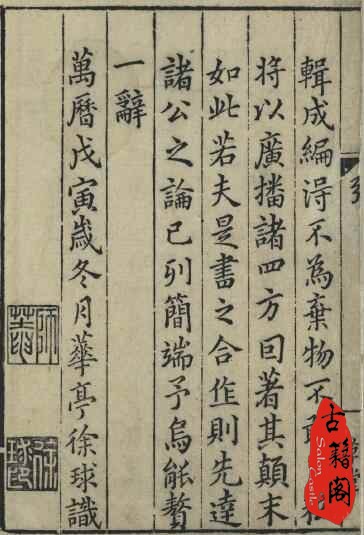 輯成編淂不為棄物不敢
将以廣播諸四方囙著其顛末
如此若夫是書之合作則先達
諸公之論已列簡端予烏能贅
一辭
萬曆戊寅歲冬月華亭徐球識
古籍阁
Salon Castle